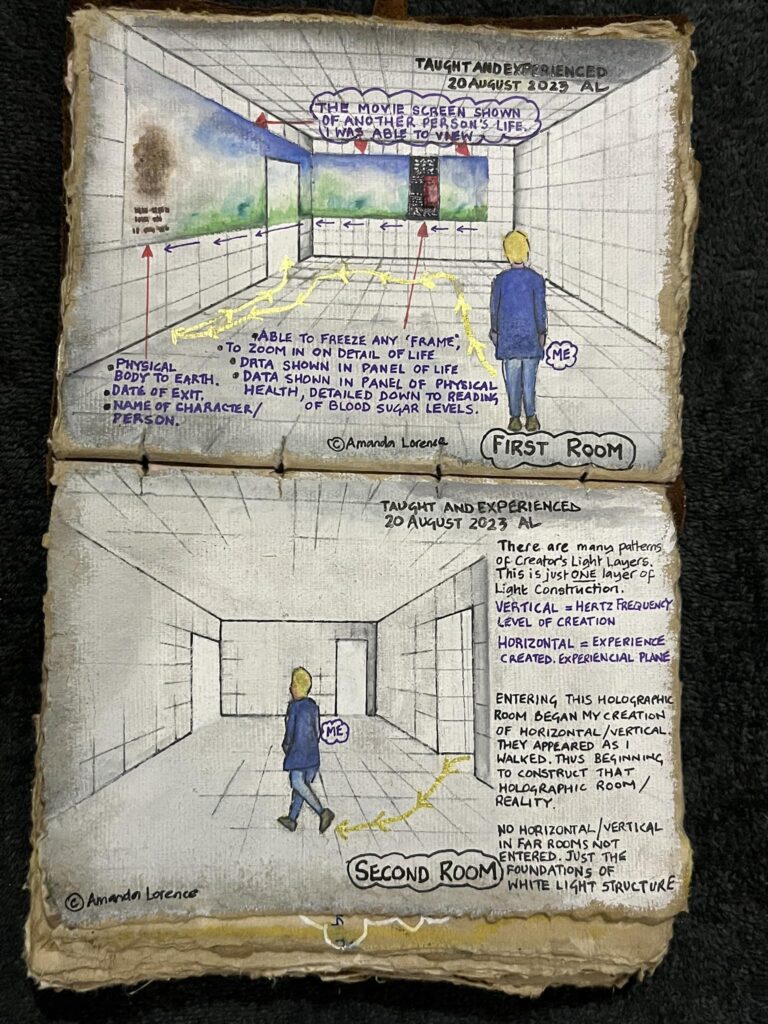 TAUGHT AND EXPERIENCED
20 AUGUST 2023 AL
THE MOVIE SCREEN SHOWN
OF ANOTHER PERSON'S LIFE.
I WAS ABLE TO VIEW
• PHYSICAL
BODY TO EARTH.
• DATE OF EXIT.
• NAME OF CHARACTER/
PERSON.
• ABLE TO FREEZE ANY 'FRAME',
• TO ZOOM IN ON DETAIL OF LIFE
• DATA SHOWN IN PANEL OF LIFE
• DATA SHOWN IN PANEL OF PHYSICAL
HEALTH, DETAILED DOWN TO READING
OF BLOOD SUGAR LEVELS.
ME
© Amanda Lorence
FIRST ROOM
TAUGHT AND EXPERIENCED
20 AUGUST 2023 AL
There are many patterns
of Creator's Light Layers.
This is just ONE layer of
Light Construction.
VERTICAL = HERTZ FREQUENCY
LEVEL OF CREATION
HORIZONTAL = EXPERIENCE
CREATED. EXPERIENCIAL PLANE
ME
ENTERING THIS HOLOGRAPHIC
ROOM BEGAN MY CREATION
OF HORIZONTAL/VERTICAL.
THEY APPEARED AS I
WALKED. THUS BEGINNING
TO CONSTRUCT THAT
HOLOGRAPHIC ROOM/
REALITY.
NO HORIZONTAL/VERTICAL
IN FAR ROOMS NOT
ENTERED. JUST THE
FOUNDATIONS OF
WHITE LIGHT STRUCTURE
SECOND ROOM
© Amanda Lorence